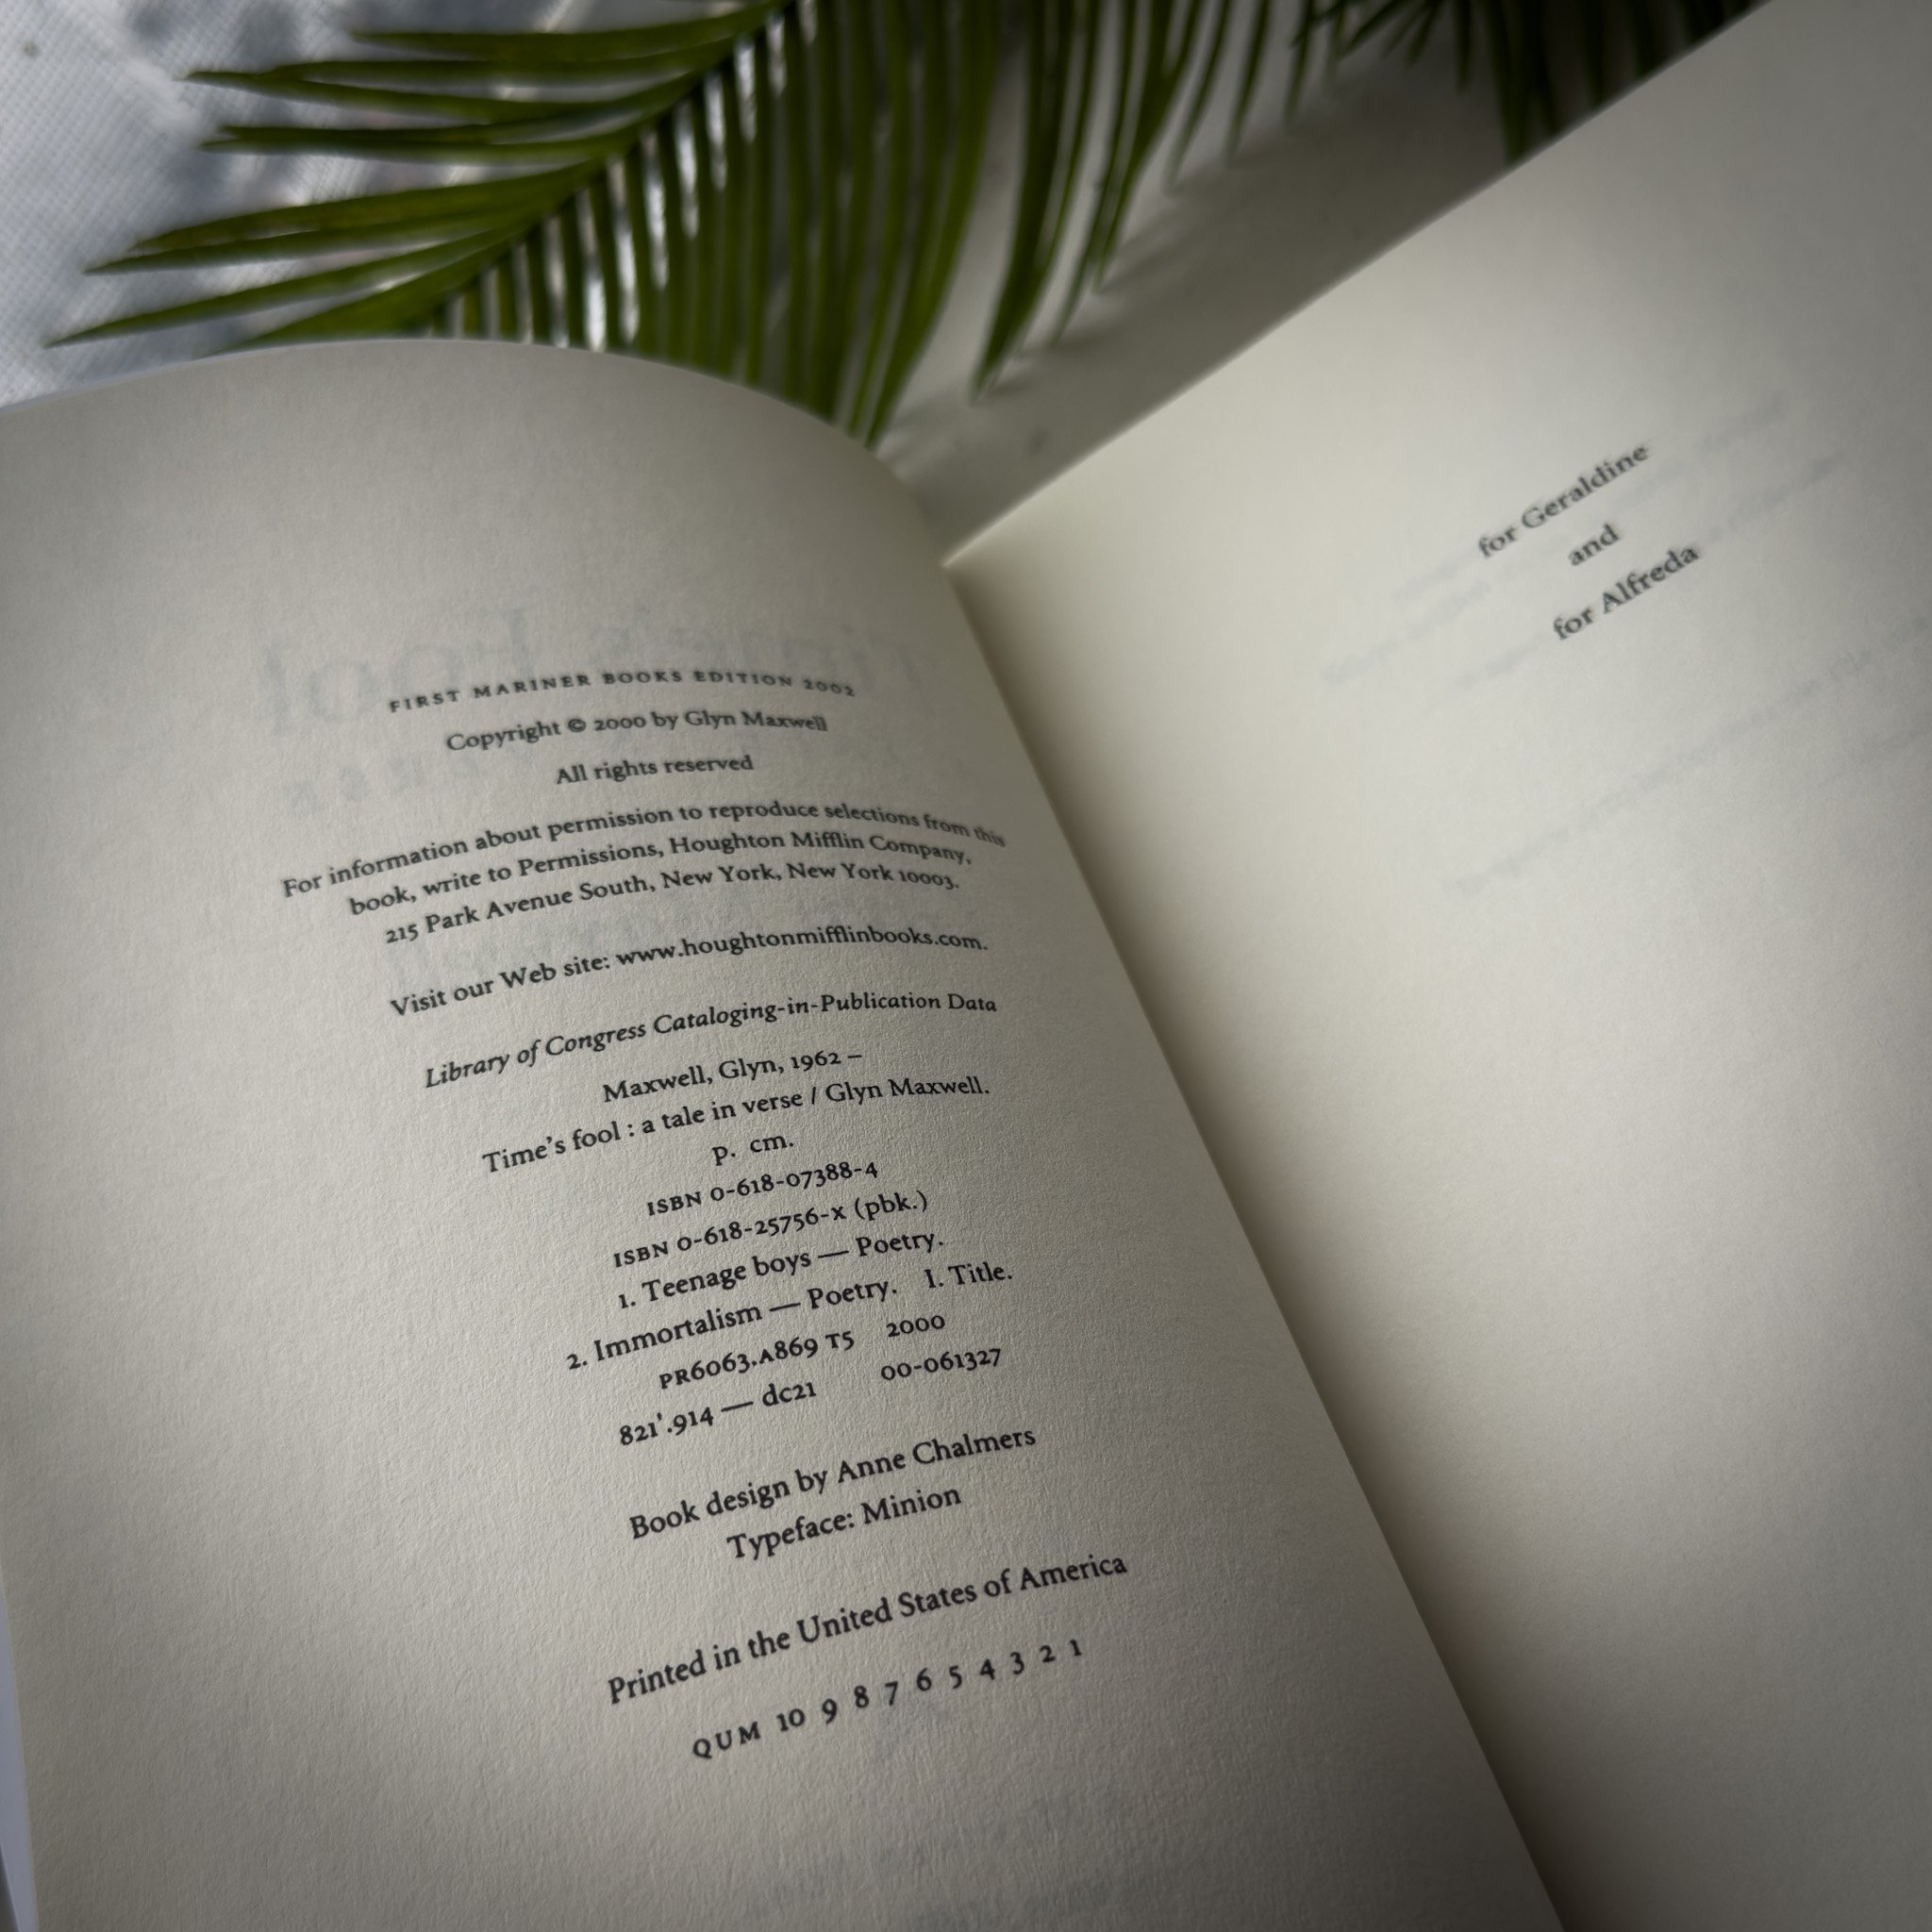 FIRST MARINER BOOKS EDITION 2002
Copyright © 2000 by Glyn Maxwell
All rights reserved
For information about permission to reproduce selections from this
book, write to Permissions, Houghton Mifflin Company,
215 Park Avenue South, New York, New York 10003.
Visit our Web site: www.houghtonmifflinbooks.com.
Library of Congress Cataloging-in-Publication Data
Maxwell, Glyn, 1962 –
Time's fool : a tale in verse / Glyn Maxwell.
p. cm.
ISBN 0-618-07388-4
ISBN 0-618-25756-X (pbk.)
1. Teenage boys — Poetry.
2. Immortalism — Poetry. I. Title.
PR6063.A869 T5 2000
821'.914 — dc21 00-061327
Book design by Anne Chalmers
Typeface: Minion
Printed in the United States of America
QUM 10 9 8 7 6 5 4 3 2 1
for Geraldine
and
for Alfreda